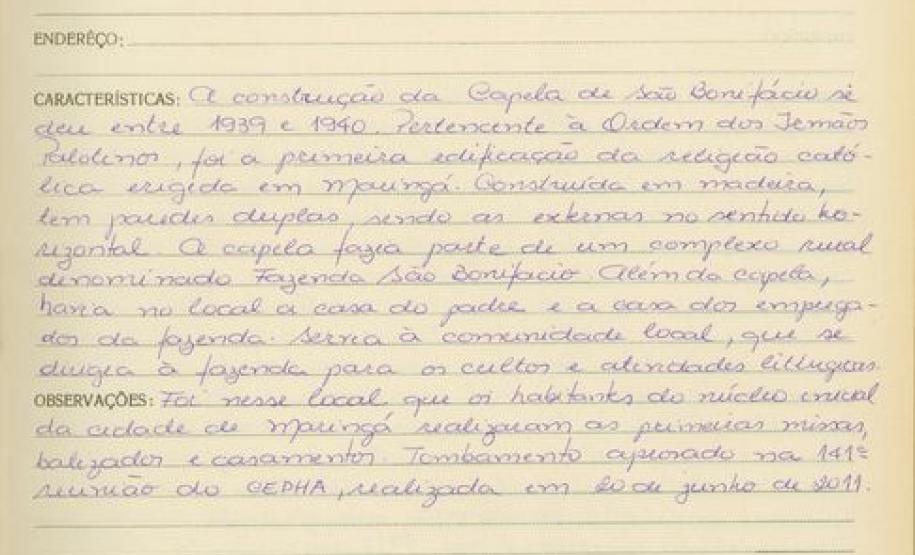 ENDERÊÇO:
CARACTERÍSTICAS: A construção da Capela de São Bonifácio se
deu entre 1939 e 1940. Pertencente à Ordem dos Irmãos
Palotinos, foi a primeira edificação da religião cató-
lica erigida em Maringá. Construída em madeira,
tem paredes duplas, sendo as externas no sentido ho-
rizontal. A capela fazia parte de um complexo rural
denominado Fazenda São Bonifacio. Além da capela,
havia no local a casa do padre e a casa dos emprega-
dos da fazenda. Servia à comunidade local, que se
dirigia à fazenda para os cultos e atividades litúrgicas.
OBSERVAÇÕES: Foi nesse local que os habitantes do núcleo inicial
da cidade de Maringá realizaram as primeiras missas,
balizados e casamentos. Tombamento aprovado na 141ª
reunião do CEPHA, realizada em 20 de junho de 2011.